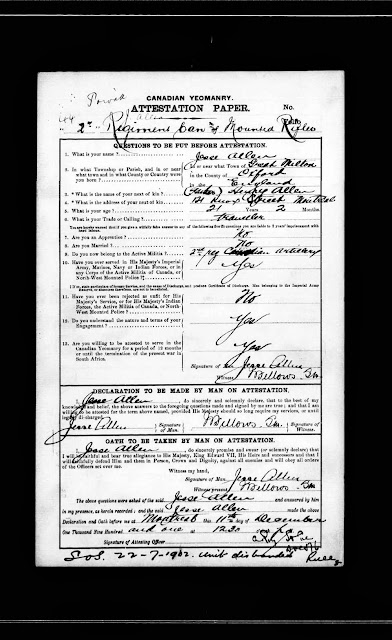 CANADIAN YEOMANRY.
ATTESTATION PAPER.
No.
Folio
2nd Regiment Can. Mounted Rifles
QUESTIONS TO BE PUT BEFORE ATTESTATION.
1. What is your name?
Jesse Allen
2. In what Township or Parish, and in or near what town and in what County or Country were you born?
in or near what Town of Great Milton
in the County of Oxford
in the England
3. What is the name of your next of kin?
(Father) Allen
4. What is the address of your next of kin?
121 Street Montreal
5. What is your age?
21 Years 2 Months
6. What is your Trade or Calling?
Traveller
7. Are you an Apprentice?
No
8. Are you Married?
No
9. Do you now belong to the Active Militia?
2nd reg Canadian Artillery
10. Have you ever served in His Majesty's Imperial Army, Marines, Navy or Indian Forces, or in any Corps of the Active Militia of Canada, or North-West Mounted Police?
Yes
11. Have you ever been rejected as unfit for His Majesty's Service, or for His Majesty's Indian Forces, the Active Militia of Canada, or North-West Mounted Police?
No
12. Do you understand the nature and terms of your Engagement?
Yes
13. Are you willing to be attested to serve in the Canadian Yeomanry for a period of 12 months or until the termination of the present war in South Africa.
Yes
Signature of Man Jesse Allen
Witness W Bellows
DECLARATION TO BE MADE BY MAN ON ATTESTATION.
I, Jesse Allen do sincerely and solemnly declare, that to the best of my knowledge and belief, the above answers to the foregoing questions made and signed by me are true; and that I am willing to be attested for the term above named, provided His Majesty should long require my services, or until legally discharged.
Jesse Allen Signature of Man. W Bellows Signature of Witness.
OATH TO BE TAKEN BY MAN ON ATTESTATION.
I, Jesse Allen do sincerely promise and swear (or solemnly declare) that I will be faithful and bear true allegiance to His Majesty, King Edward VII, His Heirs and successors and that I will faithfully defend Him and them in Person, Crown and Dignity, against all enemies and will obey all orders of the Officers set over me.
Witness my hand,
Signature of Man Jesse Allen
Witness present W Bellows
The above questions were asked of the said Jesse Allen and answered by him
in my presence, as herein recorded; and the said Jesse Allen made the
Declaration and Oath before me at Montreal this 11th day of December
One Thousand Nine Hundred and one at 12.30
Signature of Attesting Officer
S.O.S. 22-7-1902. Unit disbanded